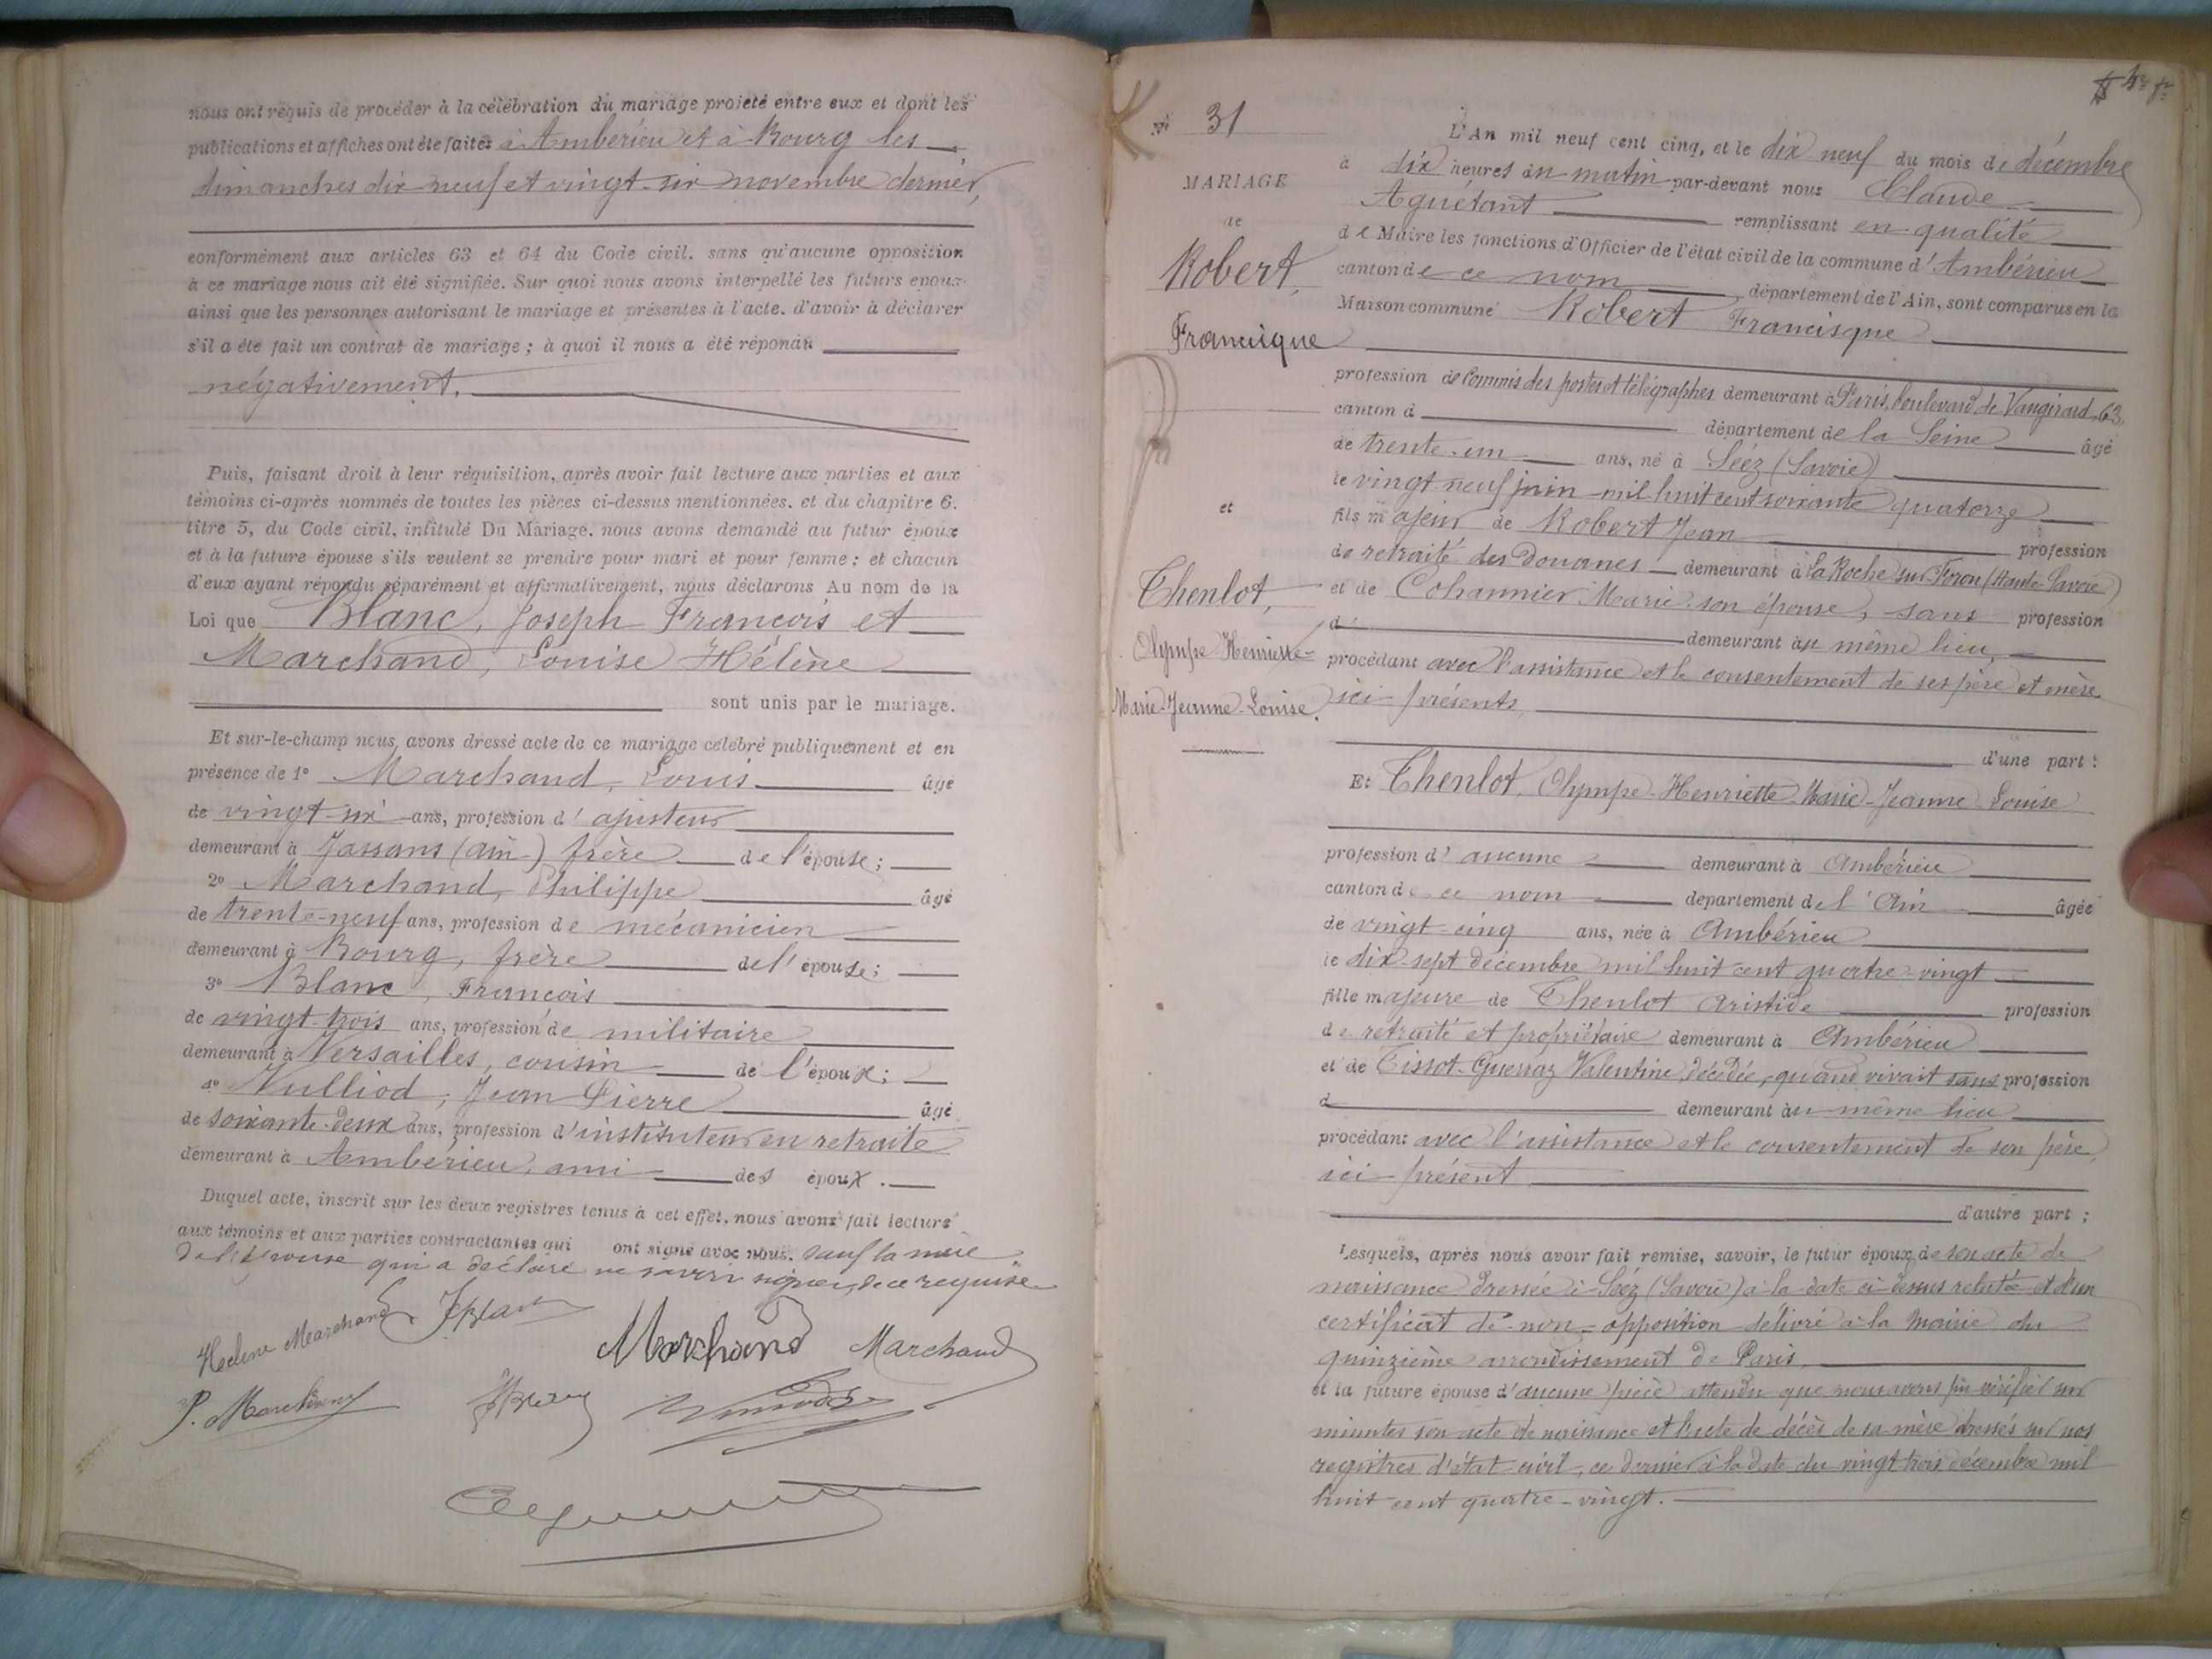 nous ont requis de procéder à la célébration du mariage projeté entre eux et dont les
publications et affiches ont été faites à Ambérieu et à Bourg les
dimanches dix-neuf et vingt-six novembre dernier,
conformément aux articles 63 et 64 du Code civil, sans qu'aucune opposition
à ce mariage nous ait été signifiée. Sur quoi nous avons interpellé les futurs époux
ainsi que les personnes autorisant le mariage et présentes à l'acte, d'avoir à déclarer
s'il a été fait un contrat de mariage ; à quoi il nous a été répondu
négativement.
Puis, faisant droit à leur réquisition, après avoir fait lecture aux parties et aux
témoins ci-après nommés de toutes les pièces ci-dessus mentionnées, et du chapitre 6,
titre 5, du Code civil, intitulé Du Mariage, nous avons demandé au futur époux
et à la future épouse s'ils veulent se prendre pour mari et pour femme ; et chacun
d'eux ayant répondu séparément et affirmativement, nous déclarons Au nom de la
Loi que Blanc, Joseph François et
Marchand, Louise Hélène
sont unis par le mariage.
Et sur-le-champ nous avons dressé acte de ce mariage célébré publiquement et en
présence de 1° Marchand, Louis âgé
de vingt-six ans, profession d'ajusteur
demeurant à Jassans (Ain) frère de l'épouse ;
2° Marchand, Philippe âgé
de trente-neuf ans, profession de mécanicien
demeurant à Bourg, frère de l'épouse ;
3° Blanc, François
de vingt-trois ans, profession de militaire
demeurant à Versailles, cousin de l'époux ;
4° Vulliod, Jean Pierre âgé
de soixante-deux ans, profession d'instituteur en retraite
demeurant à Ambérieu, ami des époux.
Duquel acte, inscrit sur les deux registres tenus à cet effet, nous avons fait lecture
aux témoins et aux parties contractantes qui ont signé avec nous, sauf la mère
de l'épouse qui a déclaré ne savoir signer, de ce requise.
Hélène Marchand JBlanc
Marchand Marchand
P. Marchand
N° 31
MARIAGE
de
Robert,
Francisque
et
Thenlot,
Olympe Henriette
Marie-Jeanne-Louise.
L'An mil neuf cent cinq, et le dix neuf du mois de décembre
à dix heures du matin par-devant nous Claude
Aguétant remplissant en qualité
de Maire les fonctions d'Officier de l'état civil de la commune d'Ambérieu
canton de ce nom département de l'Ain, sont comparus en la
Maison commune Robert Francisque
profession de Commis des postes et télégraphes demeurant à Paris, boulevard de Vaugirard, 63,
canton d département de la Seine âgé
de trente-un ans, né à Séez (Savoie)
le vingt neuf juin mil huit cent soixante quatorze
fils majeur de Robert Jean profession
de retraité des Douanes demeurant à La Roche sur Foron (Haute-Savoie)
et de Cohannier Marie son épouse, sans profession
d demeurant au même lieu,
procédant avec l'assistance et le consentement de ses père et mère
ici présents
d'une part :
Et Thenlot, Olympe-Henriette-Marie-Jeanne Louise
profession d'aucune demeurant à Ambérieu
canton de ce nom département de l'Ain âgée
de vingt-cinq ans, née à Ambérieu
le dix-sept décembre mil huit cent quatre-vingt
fille majeure de Thenlot Aristide profession
de retraité et propriétaire demeurant à Ambérieu
et de Tissot-Guerraz Valentine décédée, quand vivait sans profession
d demeurant au même lieu
procédant avec l'assistance et le consentement de son père,
ici présent
d'autre part ;
Lesquels, après nous avoir fait remise, savoir, le futur époux de son acte de
naissance dressée à Séez (Savoie) à la date ci-dessus relatée et d'un
certificat de non-opposition délivré à la Mairie du
quinzième arrondissement de Paris,
et la future épouse d'aucune pièce attendu que nous avons pu vérifier sur
minutes son acte de naissance et l'acte de décès de sa mère dressés sur nos
registres d'état-civil, ce dernier à la date du vingt trois décembre mil
huit cent quatre-vingt.